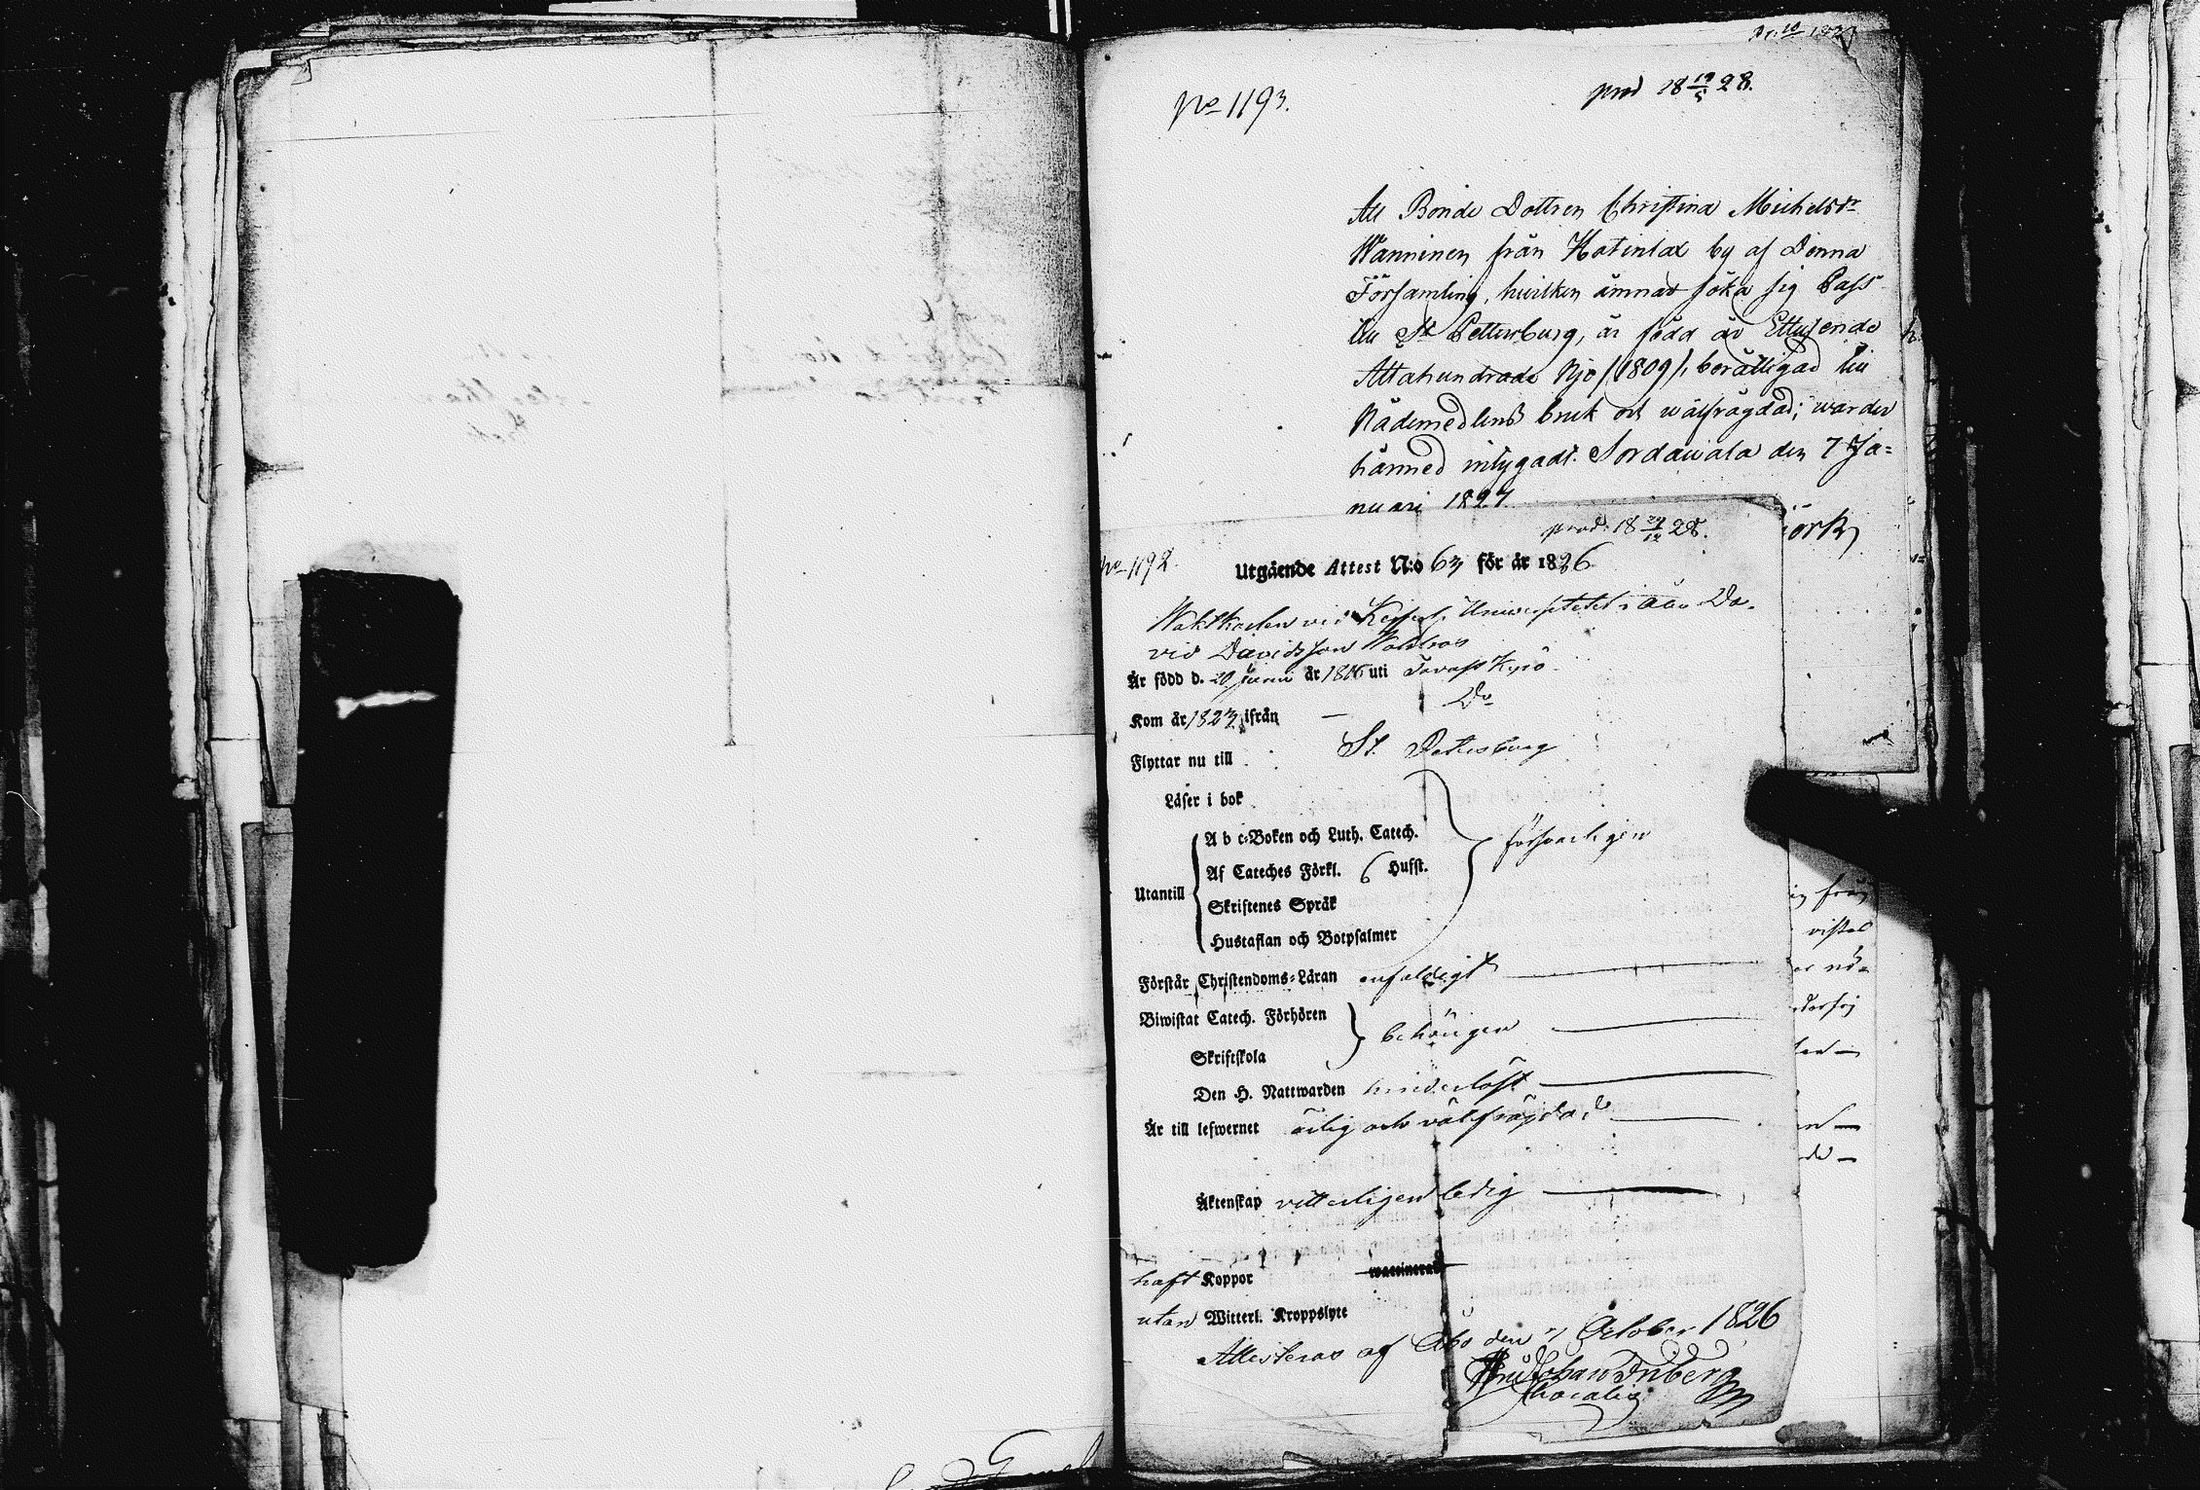 No 1193.
prod 18 19/5 28.
Att Bonde Dottren Christina Michelsdr
Wanninen från Hotinlax by af Denna
Församling, hvilken ämnar söka sig Pass
till St Petterburg, är född år Ettusende
Attahundrade Njo (1809), berättigad till
Nådemedlens bruk och wälfrägdad; warder
härmed intygadt. Sordawala den 7 Ja=
nuari 1827.
örk
prod. 18 29/12 28.
No 1192.
Utgående Attest N:o 63 för år 1826
Waktkarlen vid Kejserl. Universitetet i Åbo Da-
vid Davidsson Wahlroos
Är född d. 20 Junii år 1806 uti Tavast Kyrö
Kom år 1823 ifrån — Do
Flyttar nu till St. Petersburg
Läser i bok
A b c-Boken och Luth. Catech.
Af Cateches Förkl. 6 Hufst.
försvarligen
Utantill
Skriftenes Språk
Hustaflan och Botpsalmer
Förstår Christendoms-Läran enfaldigt
Biwistat Catech. Förhören
behörigen
Skriftskola
Den H. Nattwarden hinderlöst
Är till lefwernet ärlig och välfrägdad
Äktenskap vitterligen ledig
haft Koppor waccinerad
utan Witterl. Kroppslyte
Attesteras af Åbo den 7 October 1826